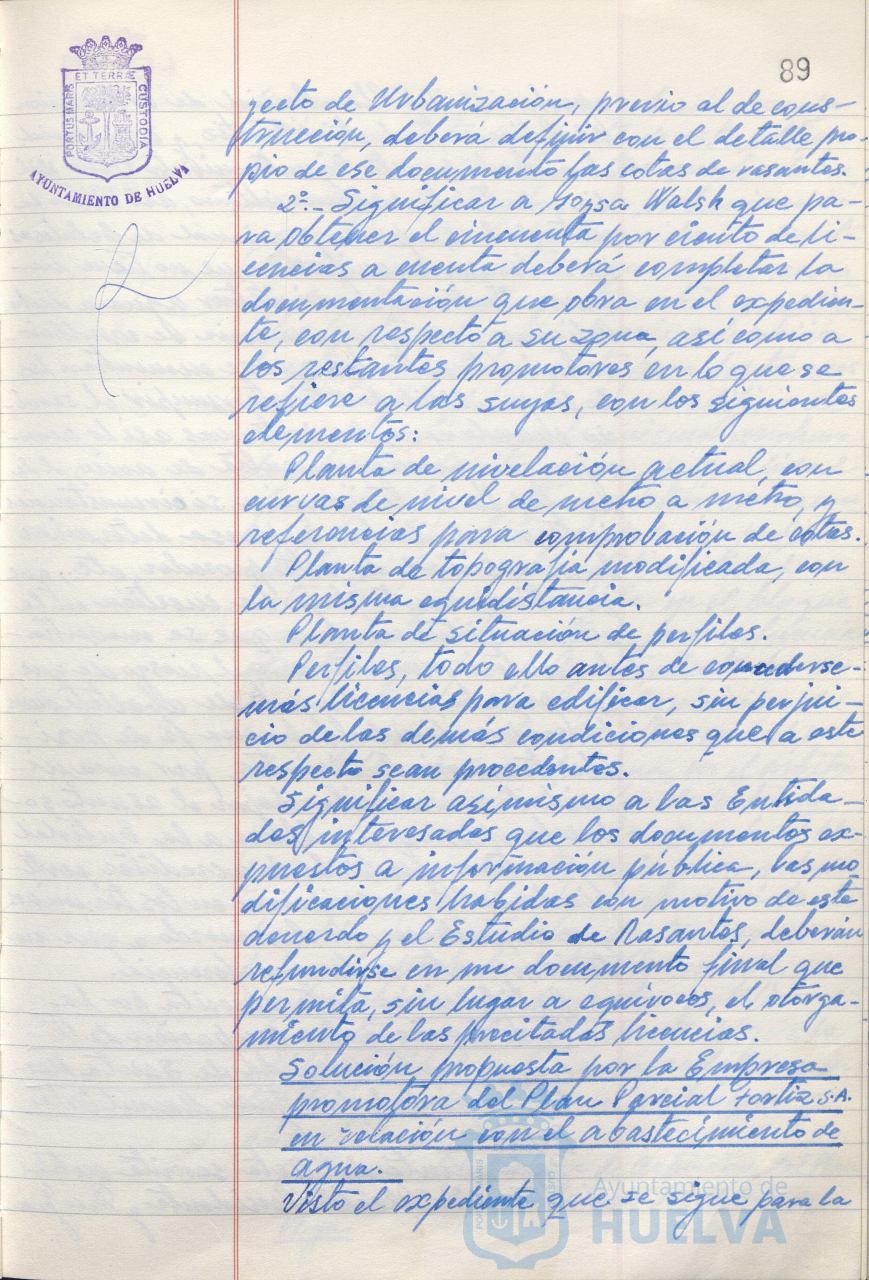 89
ET TERRÆ
PORTUS MARIS
CUSTODIA
AYUNTAMIENTO DE HUELVA
yecto de Urbanización, previo al de cons-
trucción, deberá definir con el detalle pro-
pio de ese documento las cotas de rasantes.
2º.- Significar a Walsh que pa-
ra obtener el cincuenta por ciento de li-
cencias a cuenta deberá completar la
documentación que obra en el expedien-
te, con respecto a su zona, así como a
los restantes promotores en lo que se
refiere a las suyas, con los siguientes
elementos:
Planta de nivelación actual, con
curvas de nivel de metro a metro, y
referencias para comprobación de cotas.
Planta de topografía modificada, con
la misma equidistancia.
Planta de situación de perfiles.
Perfiles, todo ello antes de concederse
más licencias para edificar, sin perjui-
cio de las demás condiciones que a este
respecto sean procedentes.
Significar asimismo a las Entida-
des interesadas que los documentos ex-
puestos a información pública, las mo-
dificaciones habidas con motivo de este
acuerdo y el Estudio de Rasantes, deberán
refundirse en un documento final que
permita, sin lugar a equívocos, el otorga-
miento de las precitadas licencias.
Solución propuesta por la Empresa
promotora del Plan Parcial Fortiz S.A.
en relación con el abastecimiento de
agua.
Visto el expediente que se sigue para la
Ayuntamiento de
HUELVA